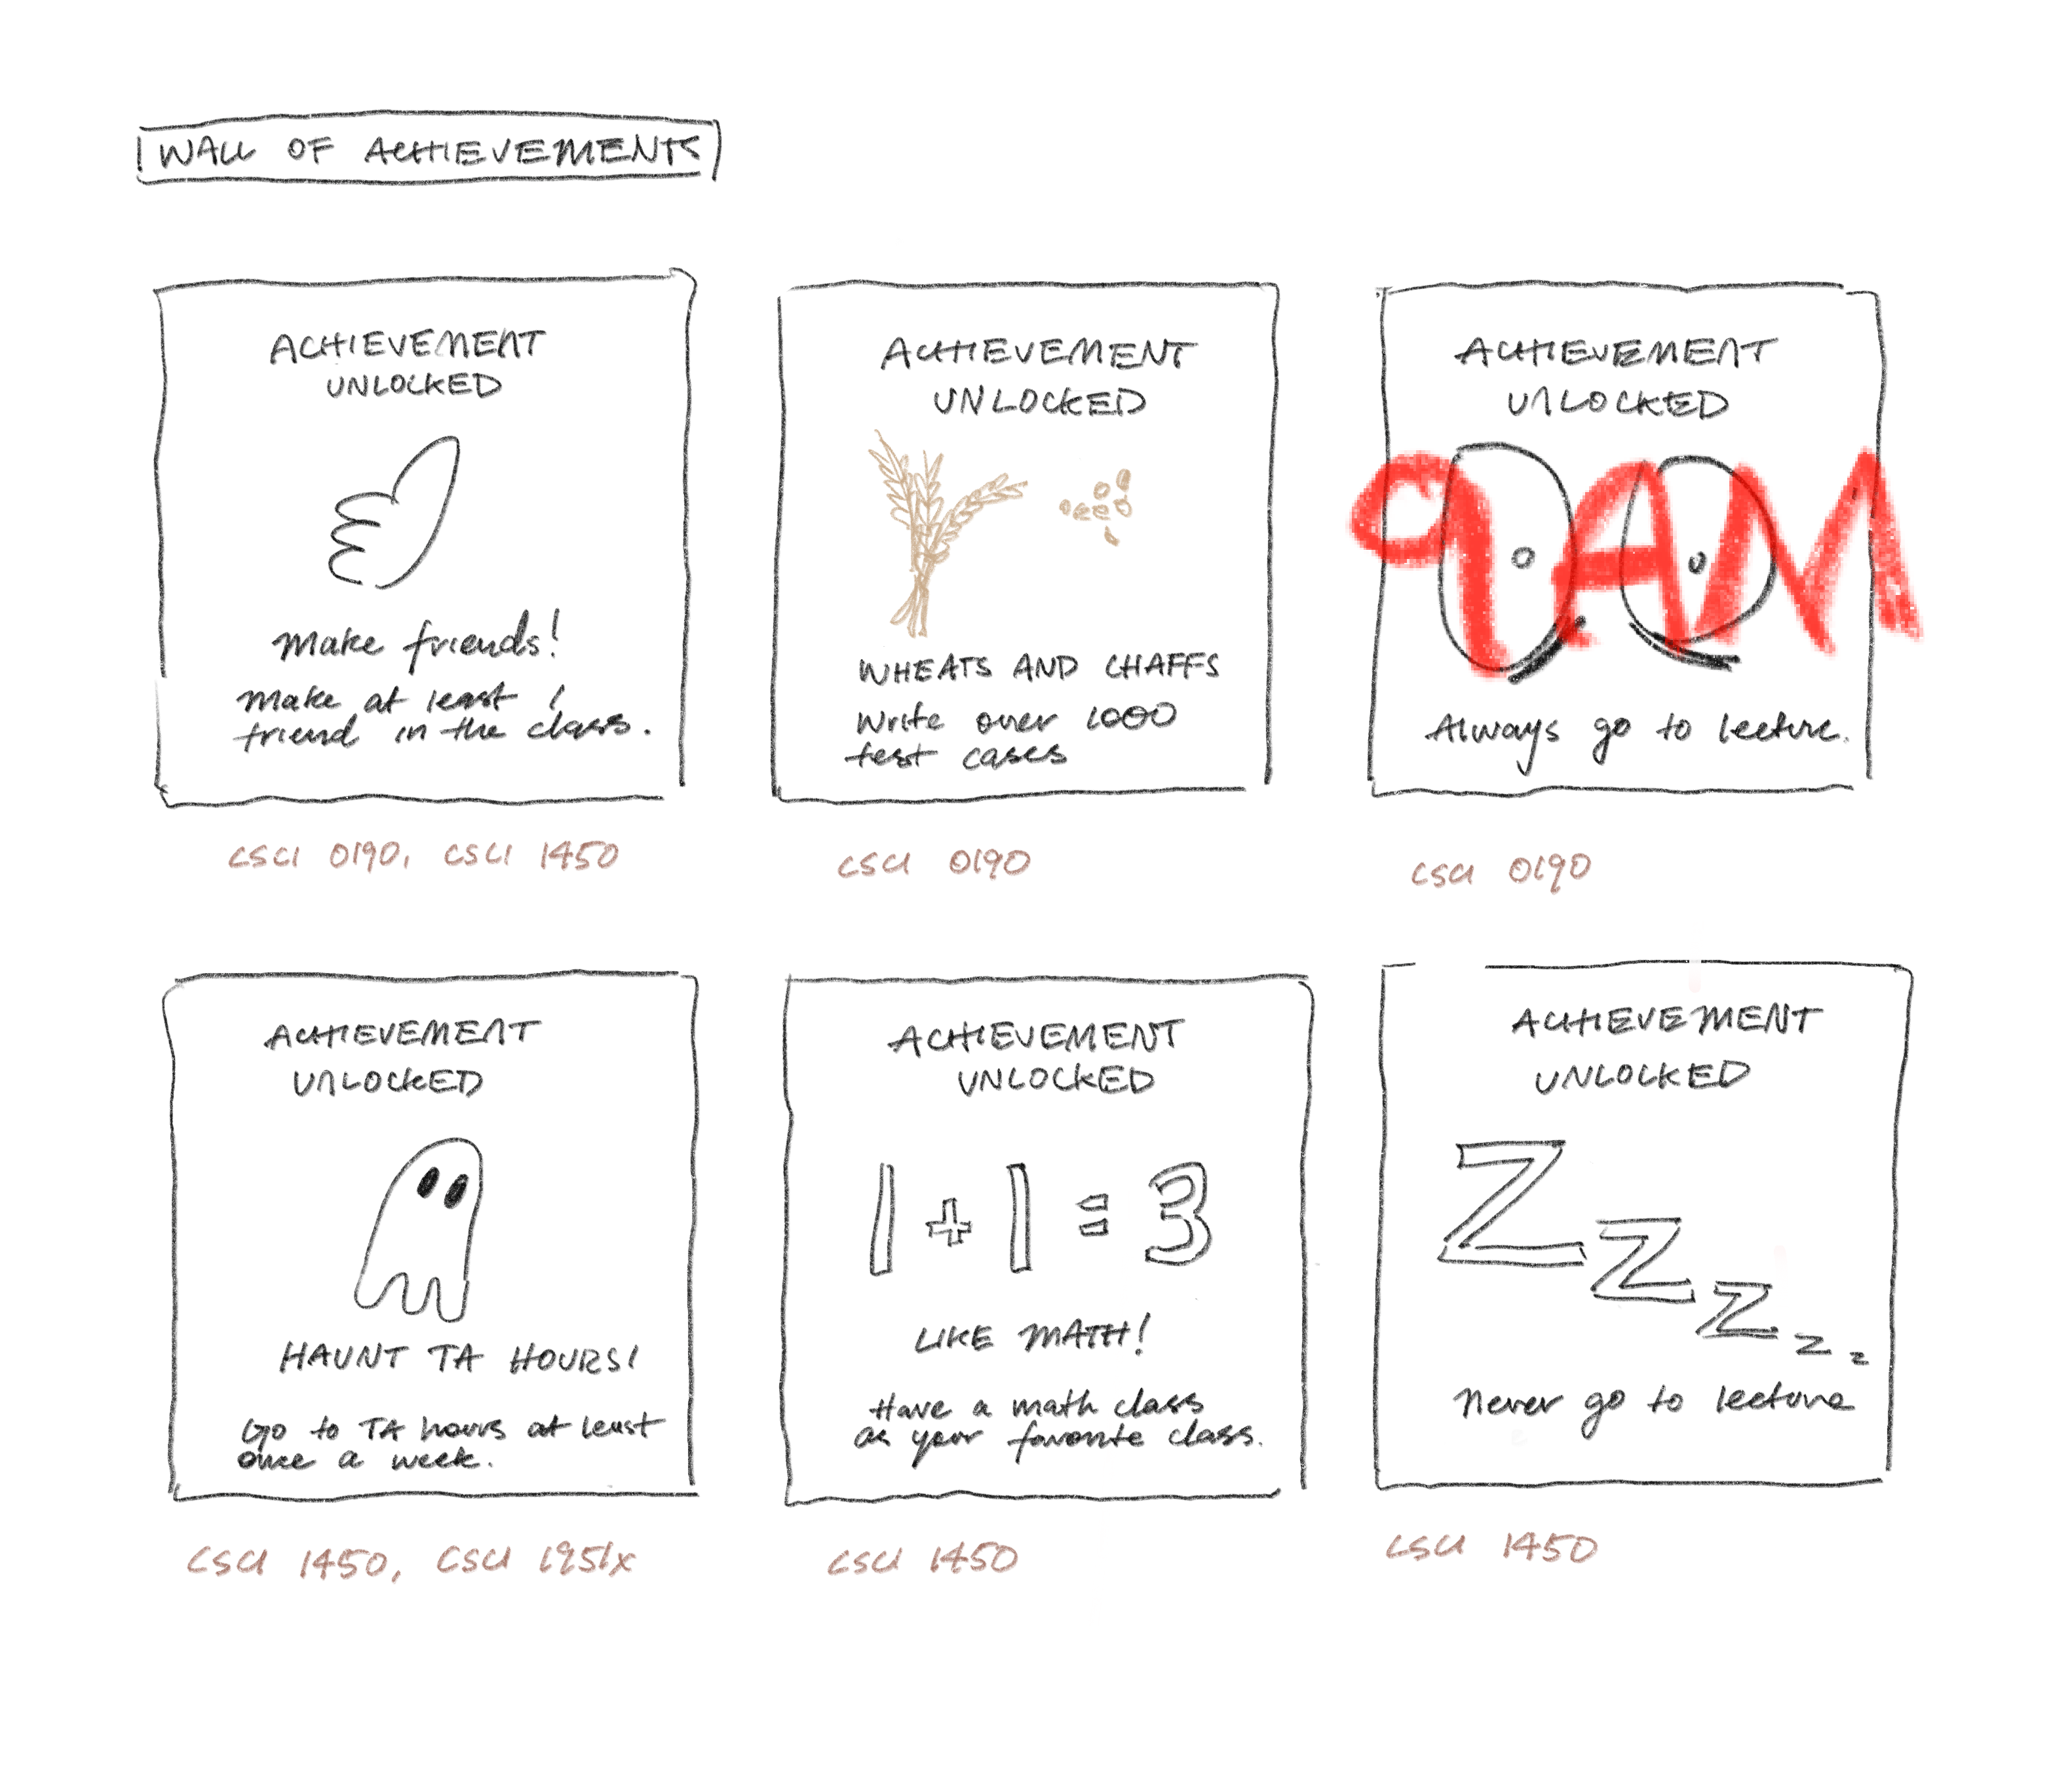 WALL OF ACHIEVEMENTS
ACHIEVEMENT
UNLOCKED
Make friends!
Make at least 1
friend in the class.
CSCI 0190, CSCI 1450
ACHIEVEMENT
UNLOCKED
WHEATS AND CHAFFS
Write over 1000
test cases
CSCI 0190
ACHIEVEMENT
UNLOCKED
9AM
Always go to lecture.
CSCI 0190
ACHIEVEMENT
UNLOCKED
HAUNT TA HOURS!
Go to TA hours at least
once a week.
CSCI 1450, CSCI 1951x
ACHIEVEMENT
UNLOCKED
1 + 1 = 3
LIKE MATH!
Have a math class
as your favorite class.
CSCI 1450
ACHIEVEMENT
UNLOCKED
Z Z Z z z
Never go to lecture
CSCI 1450